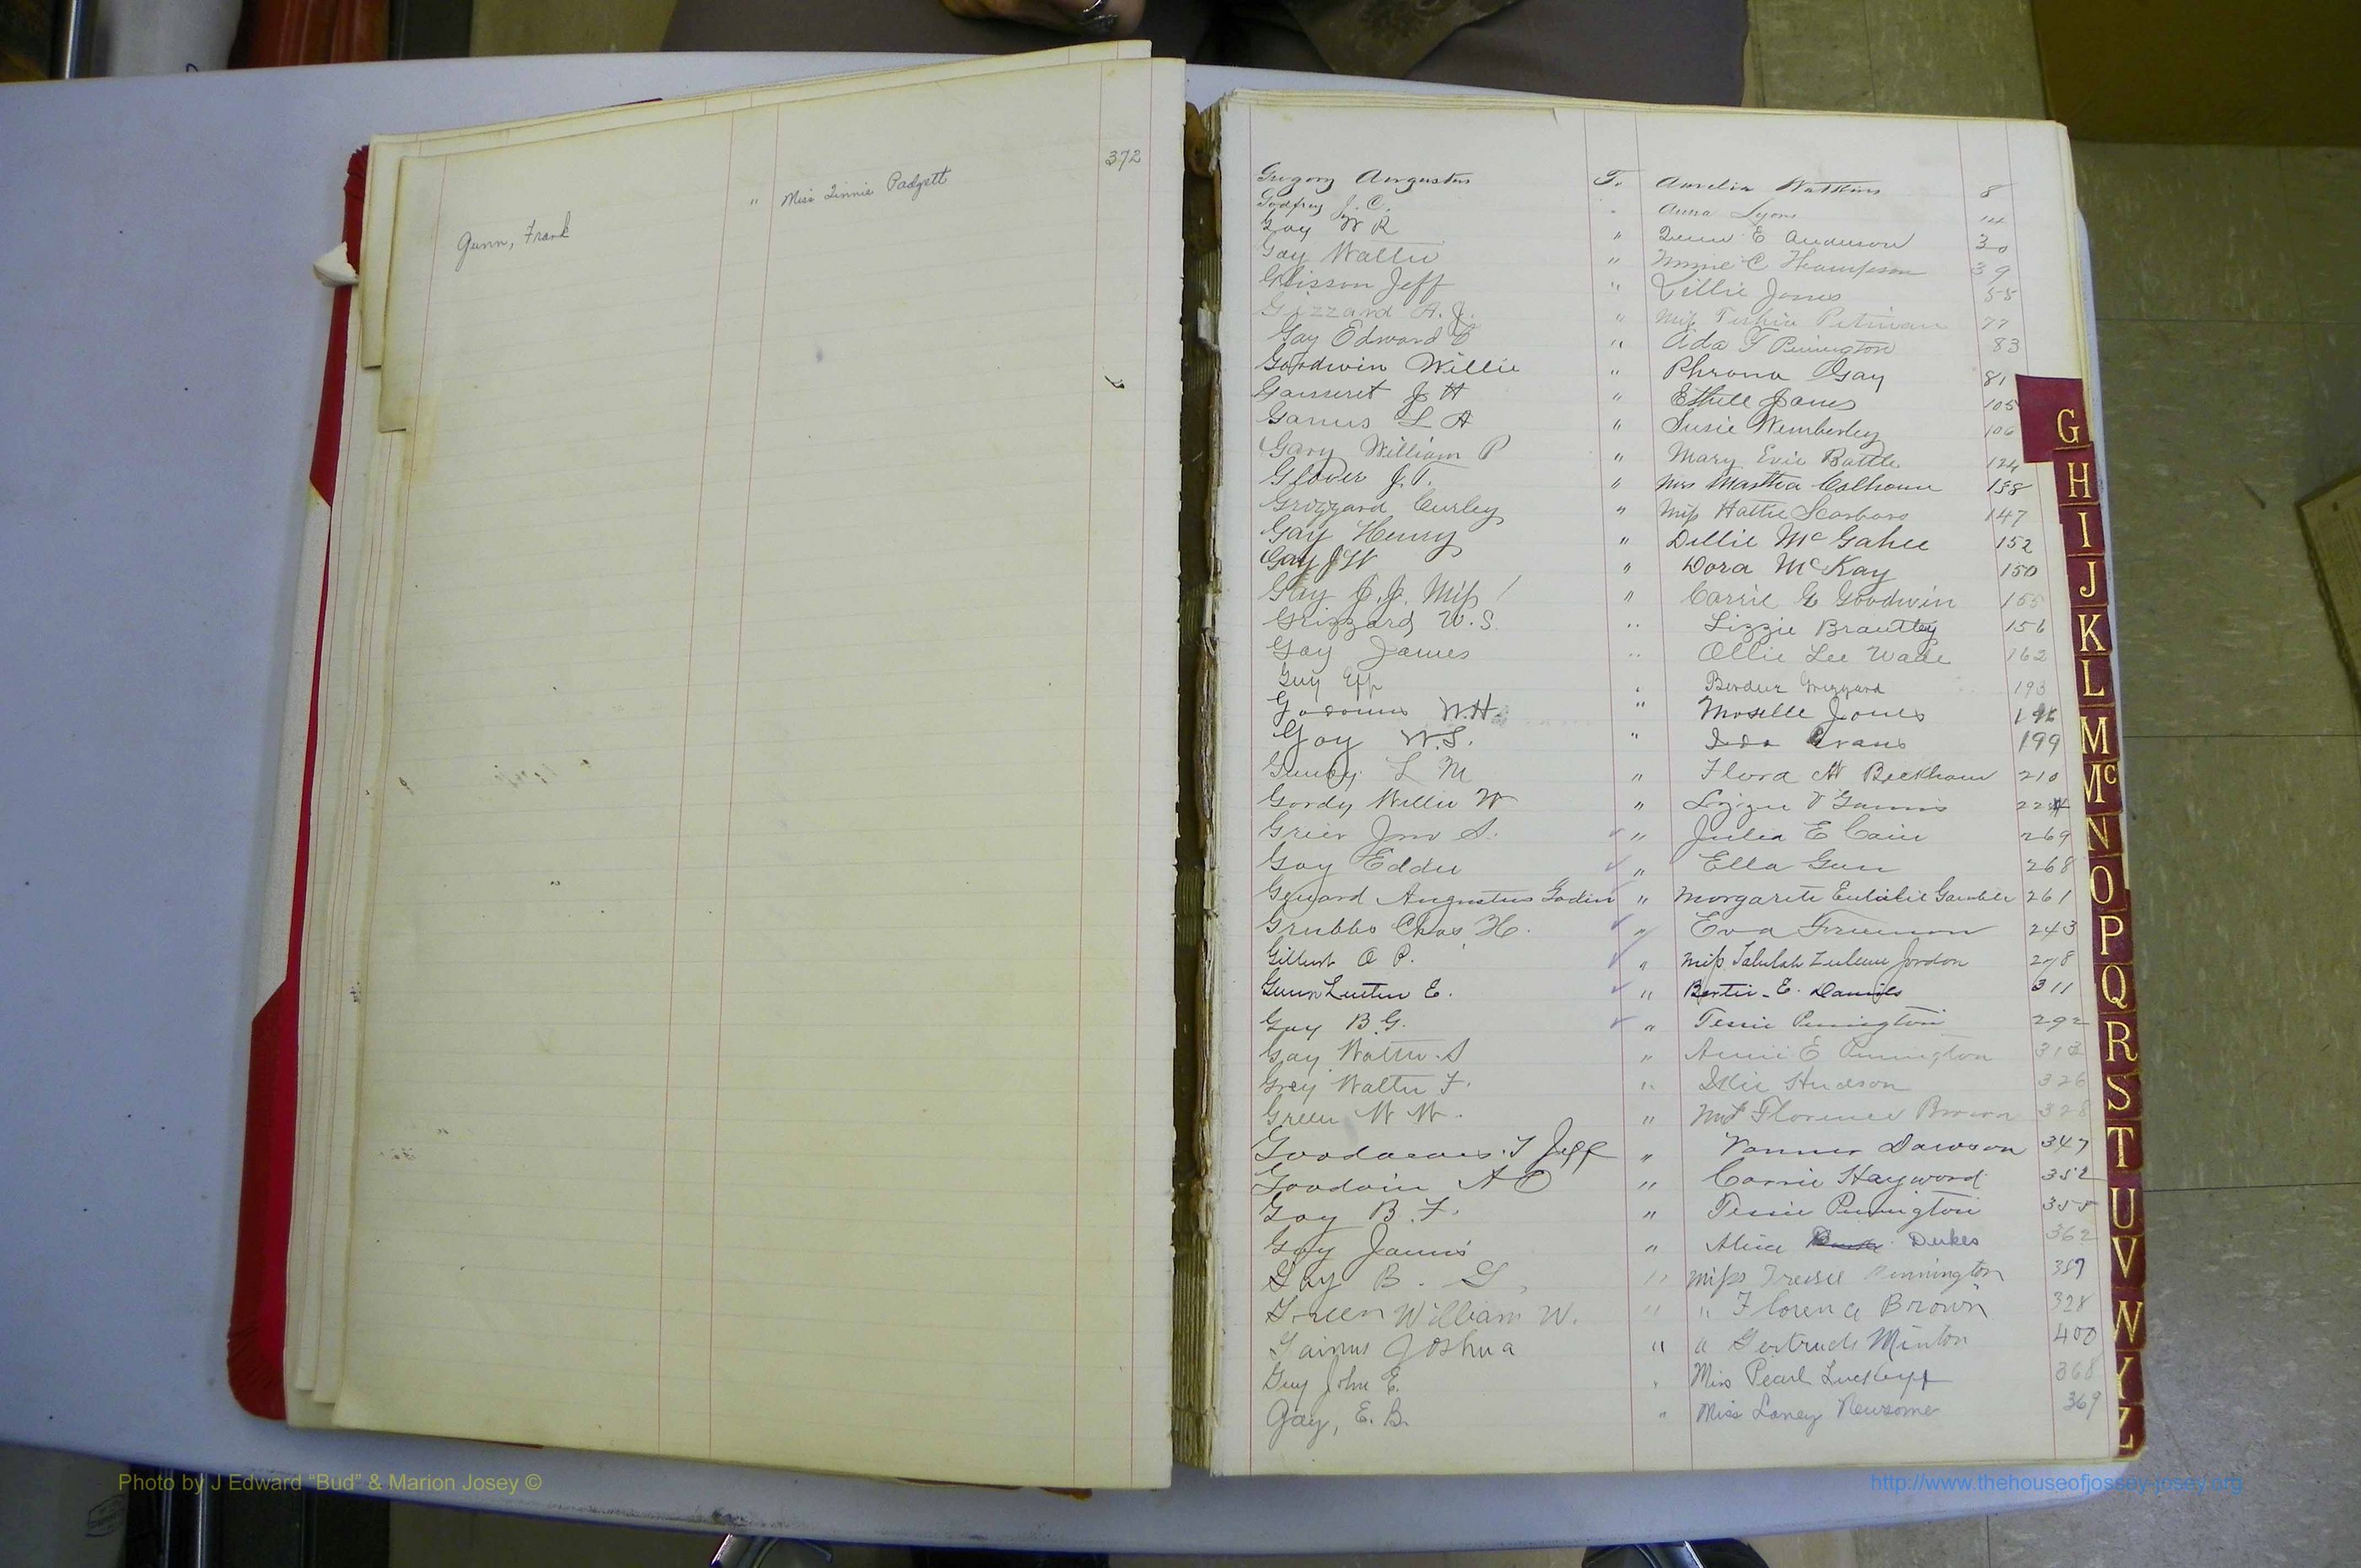 372
Gunn, Frank " Miss Linnie Padgett
Gregory Augustus To Amelia Watkins 8
Godfrey J. C. " Anna Lyons
Gay W R " E Anderson 30
Gay Walter " Minnie C Thompson 39
Glisson Jeff " Lillie Jones 55
Gizzard A. J. " Miss Pitman 77
Gay Edward C " Ada F Pennington 83
Goodwin Willie " Phrona Gay 81
J H " Ethell Jones 105
Garius L A " Susie Wemberley 106
Gary William P " Mary Evie Battle 124
Glover J. T. " Mrs Martha Calhoun 138
Grizzard Curley " Miss Hattie Scarboro 147
Gay Henry " Dillie McGahee 152
Gay J W " Dora McKay 150
Gay J. J. Miss " Carrie G Goodwin 155
Grizzard W. S. " Lizzie Brantley 156
Gay James " Ollie Lee Wade 162
Guy Eff " Grizzard 193
W. H. " Moselle Jones 196
Gay W. S. " Ida Evans 199
L M " Flora A Beckham 210
Gordy Willie W " Lizzie V Gannis 224
Grier Jno S. " Julia E Cain 269
Gay Eddie " Ella Gun 268
Augustus Godin " Margarete Eulalie Gambler 261
Grubbs Chas H. " Eva Freeman 243
Gilbert O P. " Miss Talulah Zulene Jordon 278
Gunn Luther E. " Bertie E. Daniels 311
Gay B. G. " Tessie Pennington 292
Gay Walter S " Annie E Pennington 313
Grey Walter F. " Hudson 326
Green W W. " Florence Brown 328
Jeff " Dawson 347
Goodwin A O " Carrie Hayword 352
Gay B. F. " Tessie Pennington 355
Gay James " Alice Dukes 362
Gay B. G. " Miss Pennington 389
Green William W. " " Florence Brown 328
Gainus Joshua " " Gertrude Minton 400
Guy John E. " Miss Pearl 368
Gay, E. B. " Miss Laney Newsome 369
G
H
I
J
K
L
M
Mc
N
O
P
Q
R
S
T
U
V
W
Y
Z
Photo by J Edward “Bud” & Marion Josey ©
http://www.thehouseofjossey-josey.org